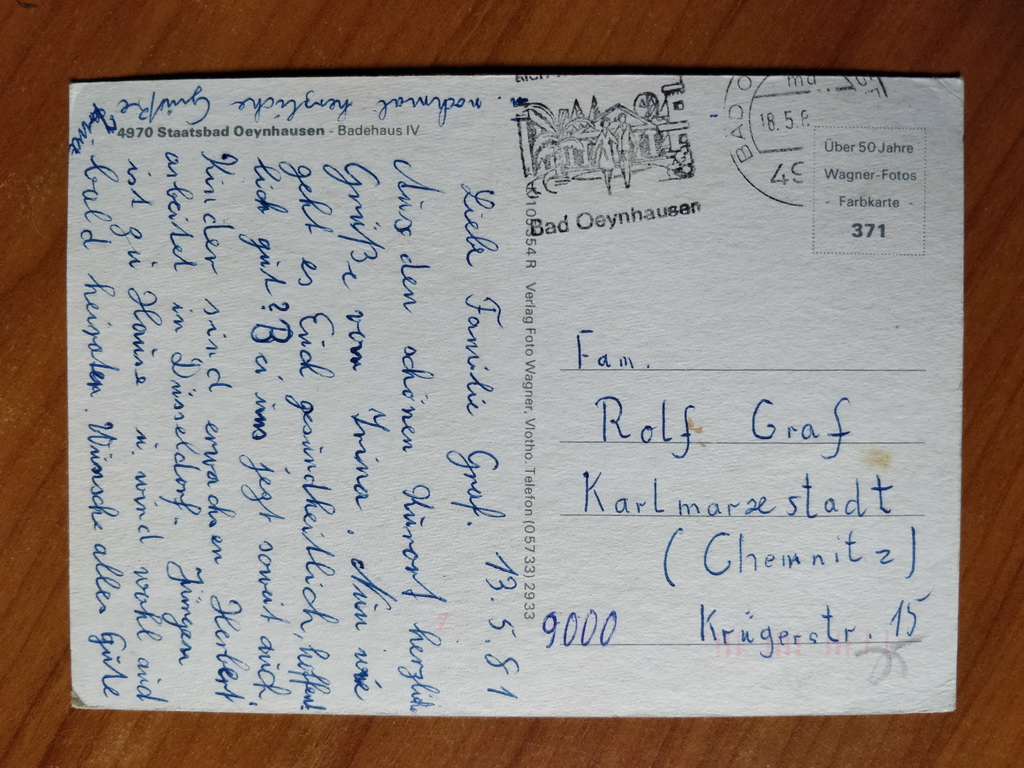 Liebe Familie Graf. 13.5.81
Aus den schönen Kurort herzliche
Grüße von Irina. Nun wie
geht es Euch gesundheitlich, hoffent
lich gut? Bei uns jezt soweit auch.
Kinder sind erwachsen Herbert
arbeitet in Düsseldorf. Jürgen
ist zu Hause u. wird wohl auch
bald heiraten. Wünsche alles Gute
u. nochmal herzliche Grüße
4970 Staatsbad Oeynhausen - Badehaus IV
54 R Verlag Foto Wagner, Vlotho. Telefon (05733) 2933
Bad Oeynhausen
BAD O
18.5.8
49
Über 50 Jahre
Wagner-Fotos
- Farbkarte -
371
Fam.
Rolf Graf
Karlmarxstadt
(Chemnitz)
9000 Krügerstr. 15